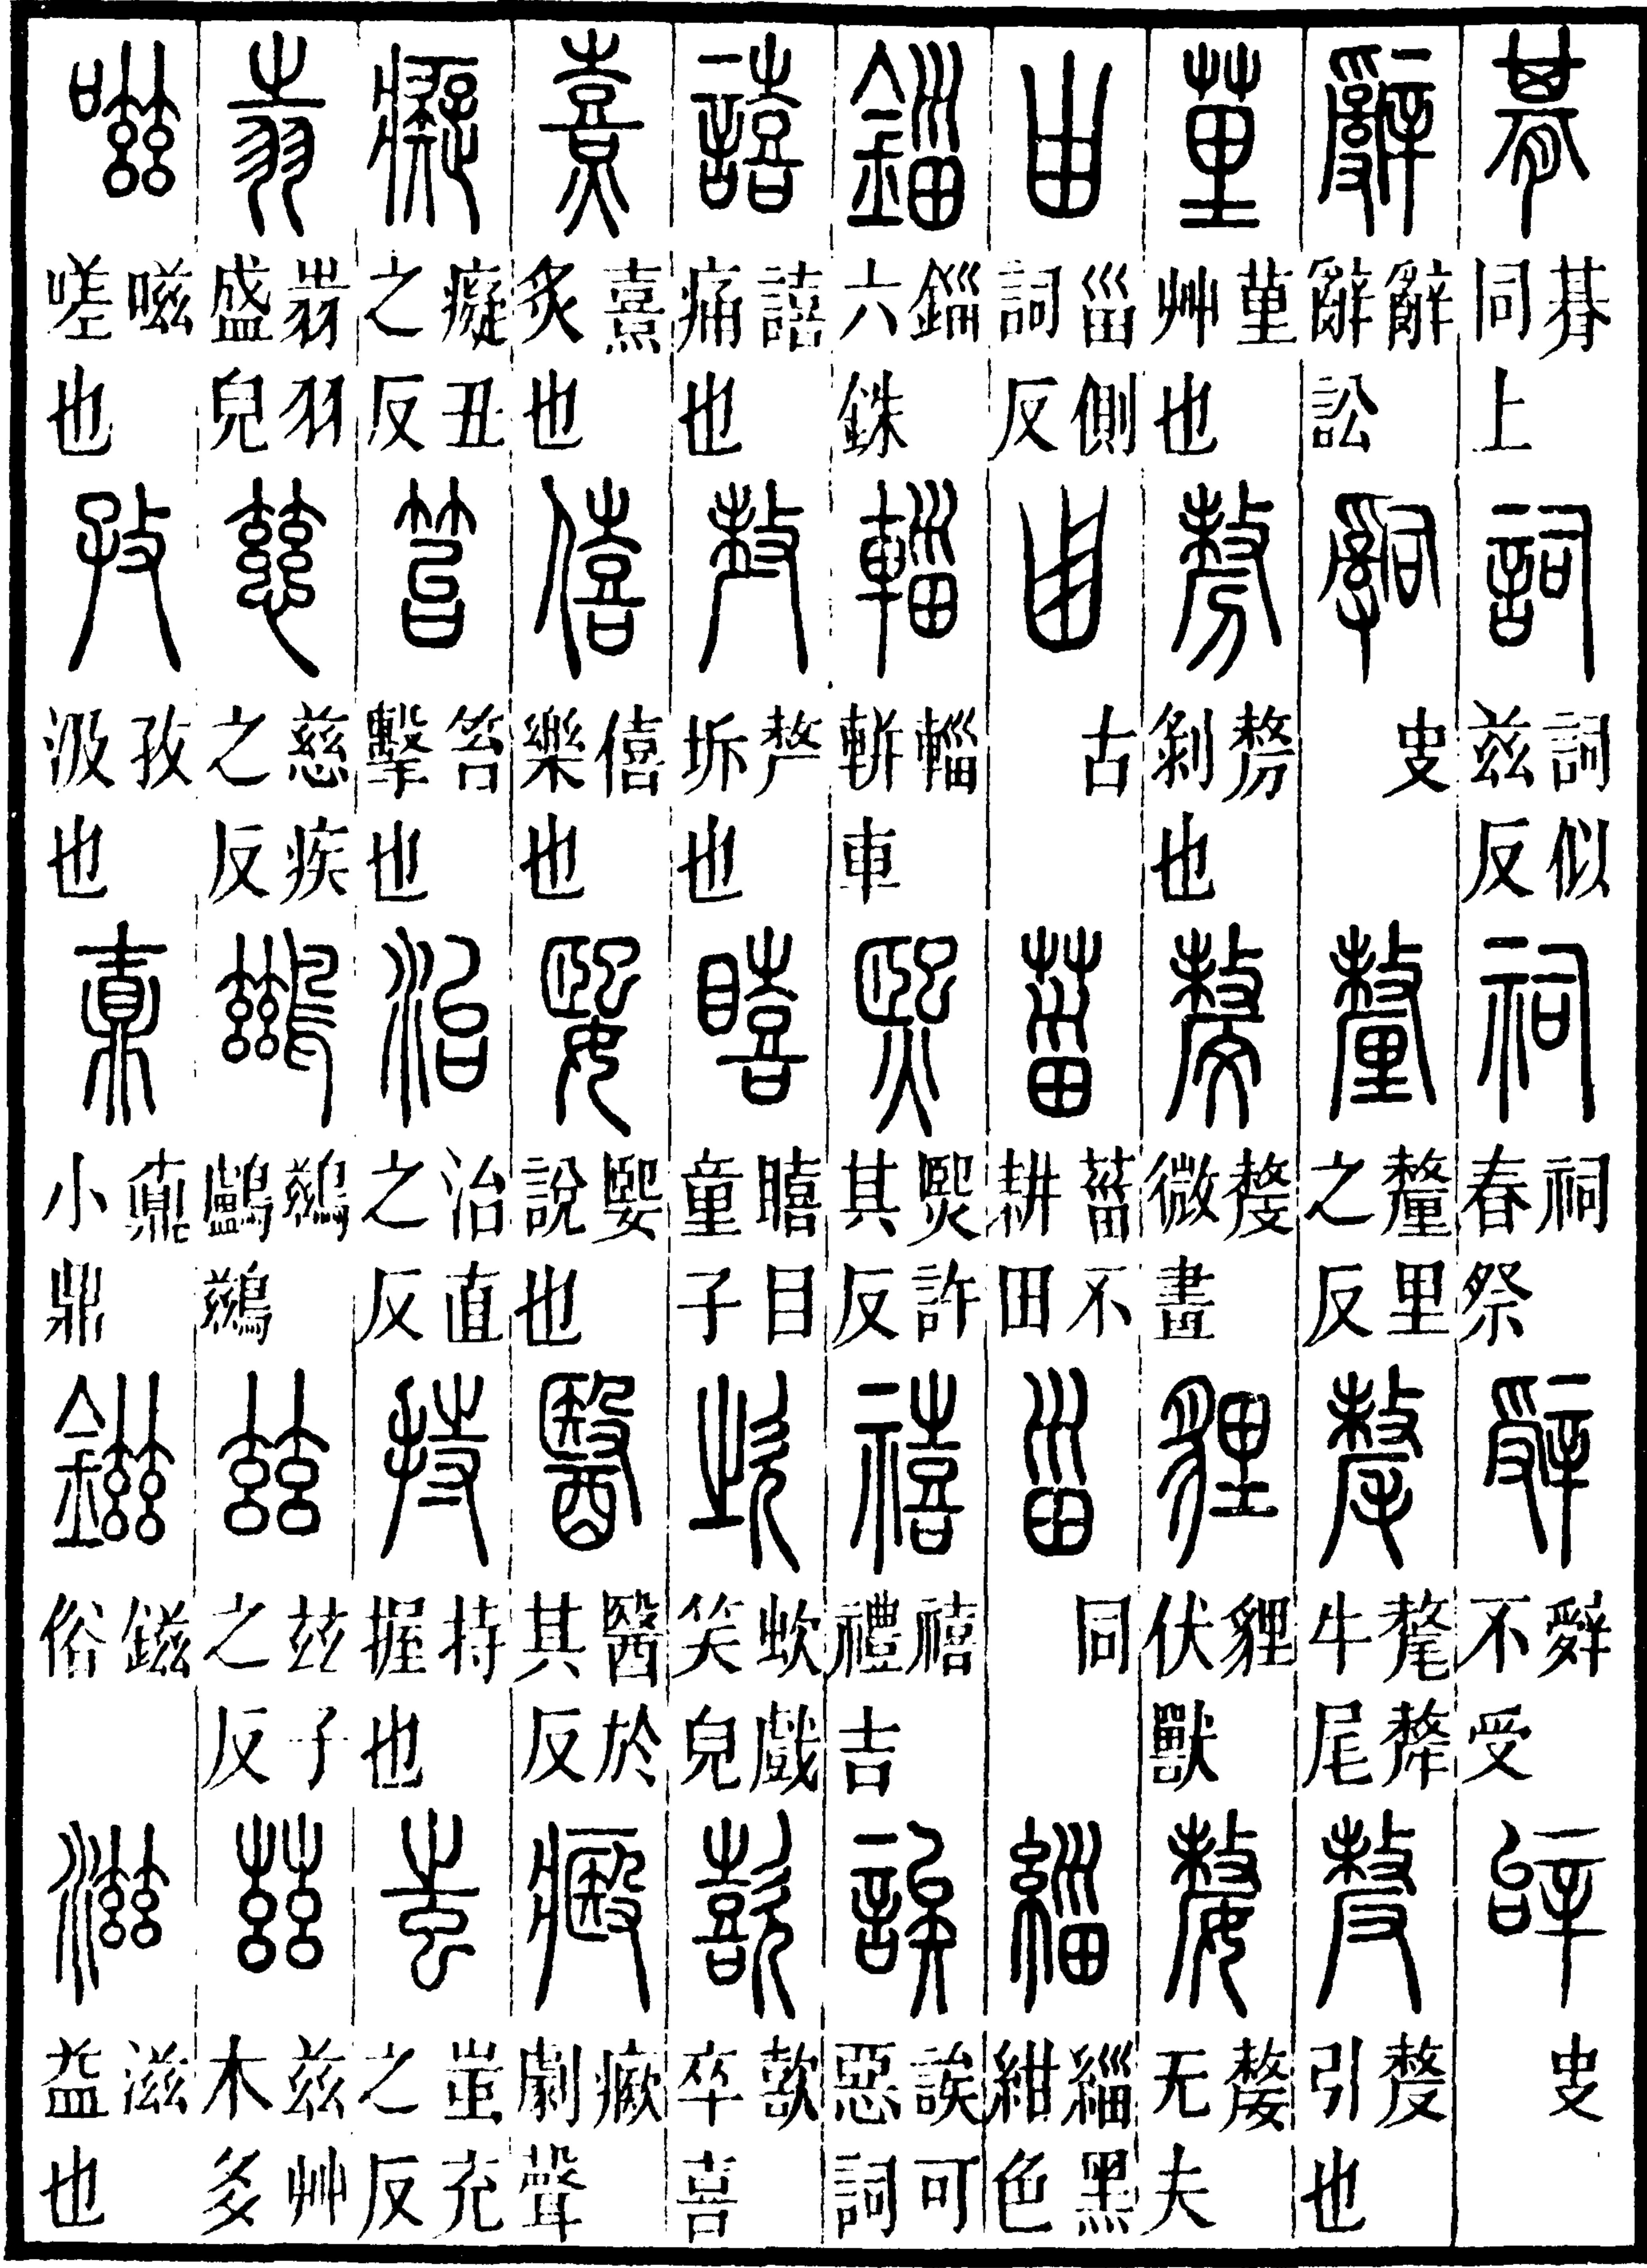 朞 朞同上 詞 詞似兹反 祠 祠春祭 辤 辤不受 辝 㕜
辭 辭辭訟 嗣 㕜 釐 釐里之反 氂 氂犛牛尾 𠭰 𠭰引也
荲 荲艸也 剺 剺剝也 𣁛 𣁛微畫 貍 貍伏獸 嫠 嫠无夫
甾 甾側詞反 𠙹 古 菑 菑不耕田 甾 同 緇 緇黑紺色
錙 錙六銖 輜 輜軿車 熙 熙許其反 禧 禧禮吉 誒 誒可惡詞
譆 譆痛也 𠩺 𠩺坼也 瞦 瞦目童子 㰞 㰞戲笑皃 歖 歖卒喜
熹 熹炙也 僖 僖樂也 媐 媐說也 醫 醫於其反 劇聲
癡 癡丑之反 笞 笞擊也 治 治直之反 持 持握也 蚩 蚩充之反
羽盛皃 慈 慈疾之反 鷀 鷀鸕鷀 兹 兹子之反 茲 茲艸木多
嗞 嗞嗟也 孜 孜汲也 鼒 鼒小鼎 鎡 鎡俗 滋 滋益也